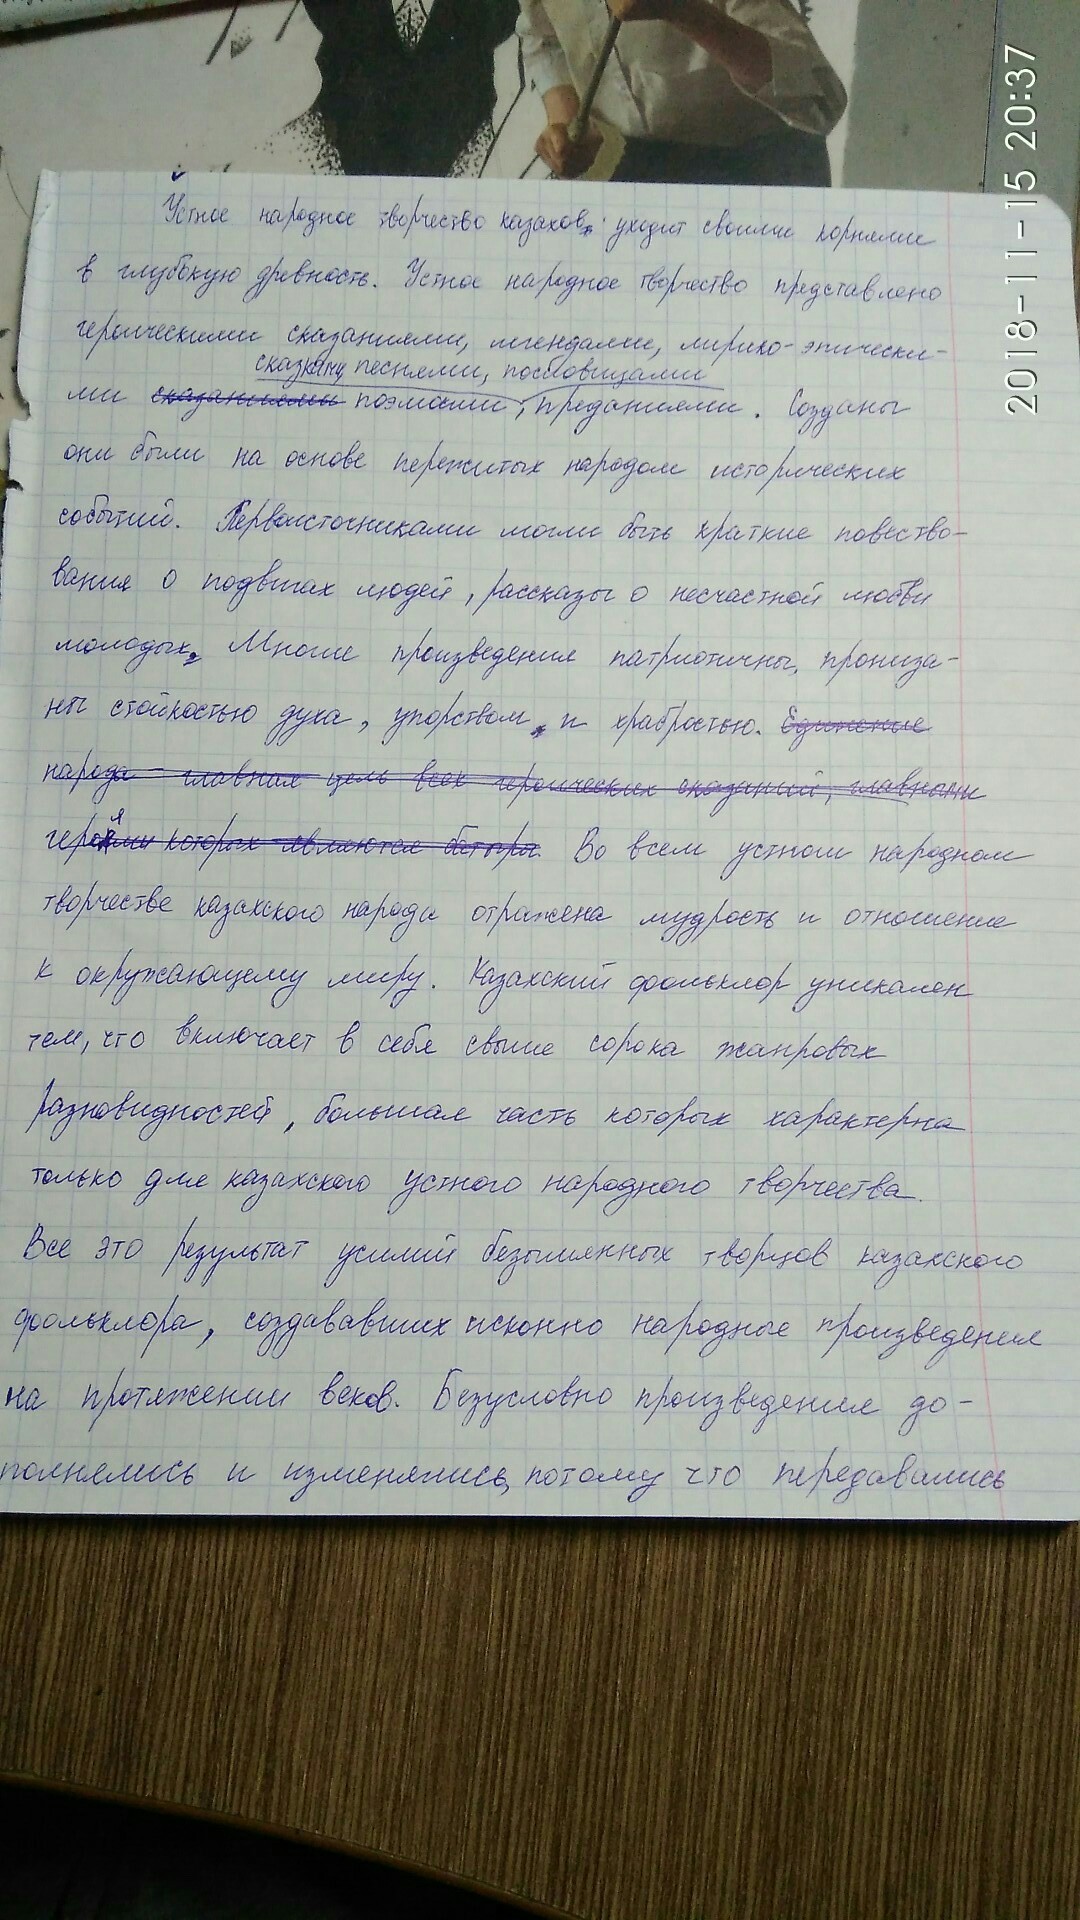 Устное народное творчество казахов уходит своими корнями
в глубокую древность. Устное народное творчество представлено
героическими сказаниями, легендами, лирико-эпически-
сказками, песнями, пословицами
ми сказаниями поэмами, преданиями. Созданы
они были на основе пережитых народом исторических
событий. Первоисточниками могли быть краткие повество-
вания о подвигах людей, рассказы о несчастной любви
молодых. Многие произведения патриотичны, прониза-
ны стойкостью духа, упорством, и храбростью. Единение
народа - главная цель всех героических сказаний, главными
героями которых являются батыры. Во всем устном народном
творчестве казахского народа отражена мудрость и отношение
к окружающему миру. Казахский фольклор уникален
тем, что включает в себя свыше сорока жанровых
разновидностей, большая часть которых характерна
только для казахского устного народного творчества.
Все это результат усилий безымянных творцов казахского
фольклора, создававших исконно народные произведения
на протяжении веков. Безусловно произведения до-
полнялись и изменялись, потому что передавались
2018-11-15 20:37